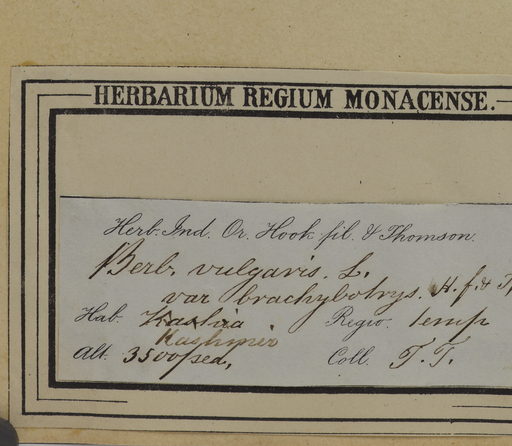 HERBARIUM REGIUM MONACENSE.
Herb. Ind. Or. Hook fil. & Thomson.
Berb. vulgaris. L.
var brachybotrys. H. f. & T.
Hab. Khasia Regio. temp
Kashmir
Alt. 3500 ped. Coll. T. T.